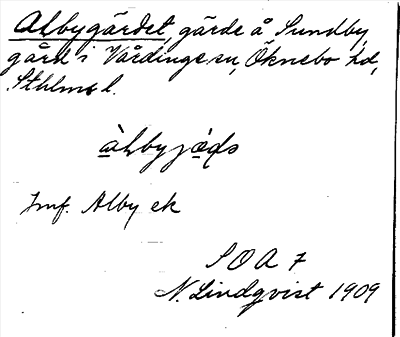 Albygärdet, gärde å Sundby,
gård i Vårdinge sn, Öknebo hd,
Sthlms l.
Jmf. Alby ek
S O A 7
N. Lindqvist 1909